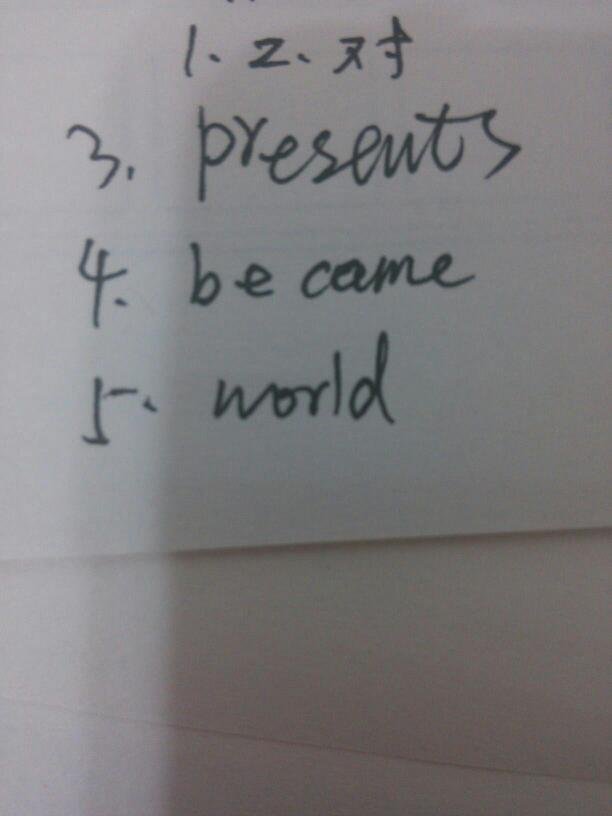 1. 2. 对
3. presents
4. became
5. world